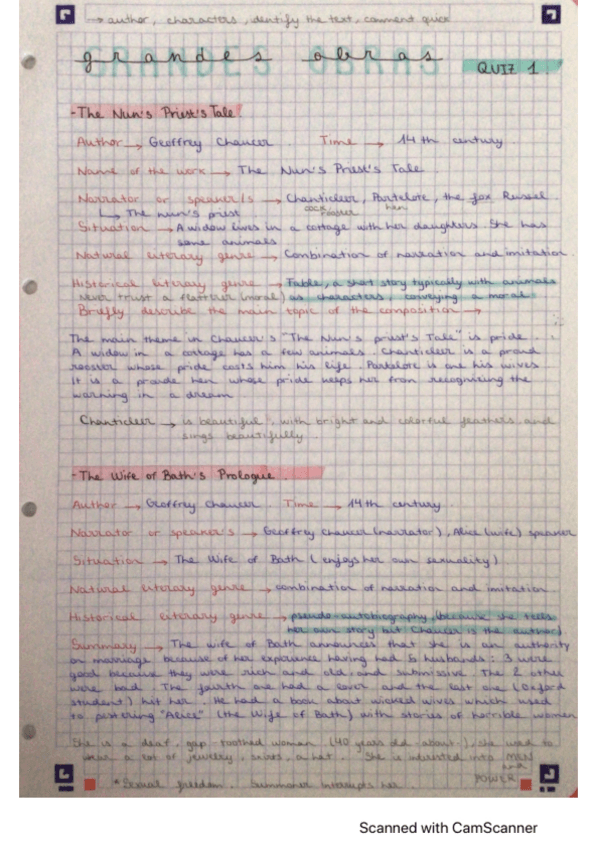 → author, characters, identify the text, comment quick
grandes obras
QUIZ 1
- The Nun's Priest's Tale
Author → Geoffrey Chaucer. Time → 14th century.
Name of the work → The Nun's Priest's Tale.
Narrator or speaker/s → Chanticleer, Partelote, the fox Russel
cock, rooster hen
↳ The nun's priest
Situation → A widow lives in a cottage with her daughters. She has
some animals
Natural literary genre → Combination of narration and imitation.
Historical literary genre → Fable, a short story typically with animals
Never trust a flatterer (moral) as characters, conveying a moral
Briefly describe the main topic of the composition →
The main theme in Chaucer's "The Nun's priest's Tale" is pride.
A widow in a cottage has a few animals. Chanticleer is a proud
rooster whose pride costs him his life. Partelote is one his wives
It is a proude hen whose pride keeps her from recognizing the
warning in a dream
Chanticleer → is beautiful, with bright and colorful feathers and
sings beautifully.
- The Wife of Bath's Prologue.
Author → Geoffrey Chaucer. Time → 14th century.
Narrator or speaker's → Geoffrey Chaucer (narrator), Alice (wife) speaker
Situation → The Wife of Bath (enjoys her own sexuality)
Natural literary genre → combination of narration and imitation
Historical literary genre → pseudo-autobiography (because she tells
her own story but Chaucer is the author)
Summary → The wife of Bath announces that she is an authority
on marriage because of her experience having had 5 husbands: 3 were
good because they were rich and old and submissive. The 2 other
were bad. The fourth one had a lover and the last one (Oxford
student) hit her. He had a book about wicked wives which used
to pestering "Alice" (the Wife of Bath) with stories of horrible women
She is a deaf, gap-toothed woman (40 years old -about-), she used to
wear a lot of jewelry, skirts, a hat. She is interested into MEN
and
POWER
* Sexual freedom. Summoner interrupts her.
Scanned with CamScanner